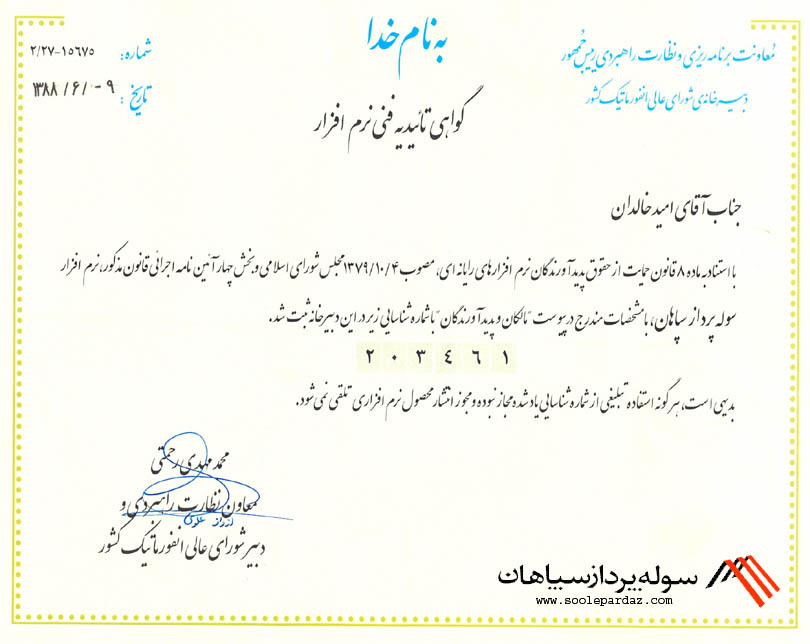 به نام خدا
معاونت برنامه ریزی و نظارت راهبردی رییس جمهور
دبیرخانه‌ی شورای عالی انفورماتیک کشور
شماره: ۲/۲۷-۱۵۶۷۵
تاریخ: ۱۳۸۸/۶/۰۹
گواهی تائیدیه فنی نرم افزار
جناب آقای امید خالدان
با استناد به ماده ۸ قانون حمایت از حقوق پدید آورندگان نرم افزارهای رایانه ای، مصوب ۱۳۷۹/۱۰/۴ مجلس شورای اسلامی و بخش چهار آئین نامه اجرائی قانون مذکور، نرم افزار
سوله پرداز سپاهان، با مشخصات مندرج در پیوست "مالکان و پدید آورندگان" با شماره شناسایی زیر در این دبیرخانه ثبت شد.
۲ ۰ ۳ ۴ ۶ ۱
بدیهی است، هرگونه استفاده تبلیغی از شماره شناسایی یاد شده مجاز نبوده و مجوز انتشار محصول نرم افزاری تلقی نمی شود.
محمد مهدی رحمتی
معاون نظارت راهبردی و
دبیر شورای عالی انفورماتیک کشور
سوله پرداز سپاهان
www.soolepardaz.com